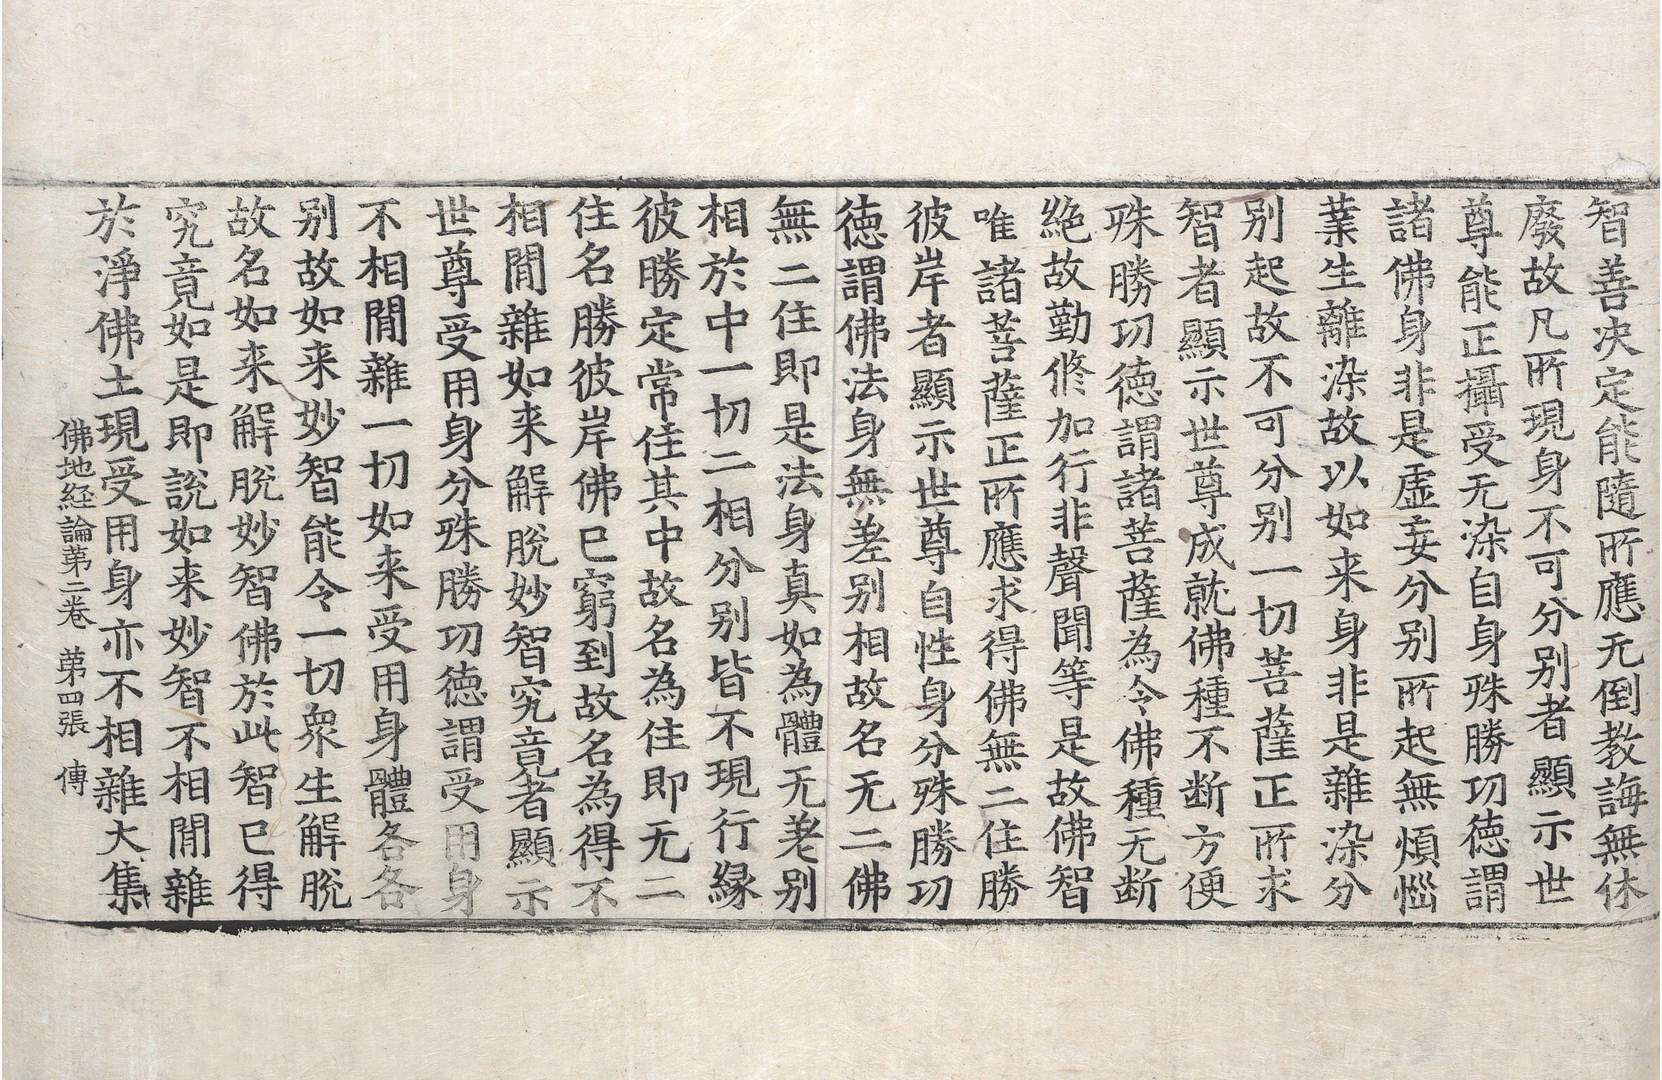 智善决定能隨所應无倒教誨無休
廢故凡所現身不可分別者顯示世
尊能正攝受无染自身殊勝功徳謂
諸佛身非是虛妄分別所起無煩惱
業生離染故以如来身非是雜染分
別起故不可分別一切菩薩正所求
智者顯示世尊成就佛種不断方便
殊勝功徳謂諸菩薩為令佛種无断
絶故勤修加行非聲聞等是故佛智
唯諸菩薩正所應求得佛無二住勝
彼岸者顯示世尊自性身分殊勝功
徳謂佛法身無差別相故名无二佛
無二住即是法身真如為體无差別
相於中一切二相分別皆不現行縁
彼勝定常住其中故名為住即无二
住名勝彼岸佛已窮到故名為得不
相閒雜如来解脱妙智究竟者顯示
世尊受用身分殊勝功徳謂受用身
不相閒雜一切如来受用身體各各
別故如来妙智能令一切衆生解脱
故名如来解脱妙智佛於此智已得
究竟如是即說如来妙智不相閒雜
於淨佛土現受用身亦不相雜大集
佛地経論苐二卷 苐四張 傳